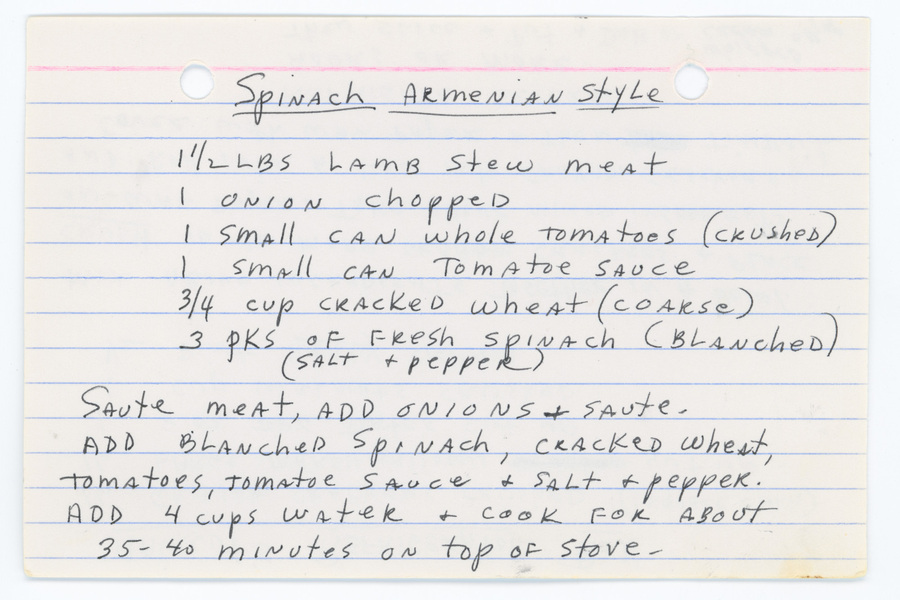 Spinach Armenian Style
1 1/2 LBS Lamb Stew meat
1 onion chopped
1 small can whole tomatoes (crushed)
1 small can Tomatoe sauce
3/4 cup cracked wheat (coarse)
3 pks of Fresh spinach (Blanched)
(salt + pepper)
Saute meat, add onions + saute.
Add Blanched Spinach, cracked wheat,
tomatoes, tomatoe sauce + salt + pepper.
Add 4 cups water + cook for about
35-40 minutes on top of stove-